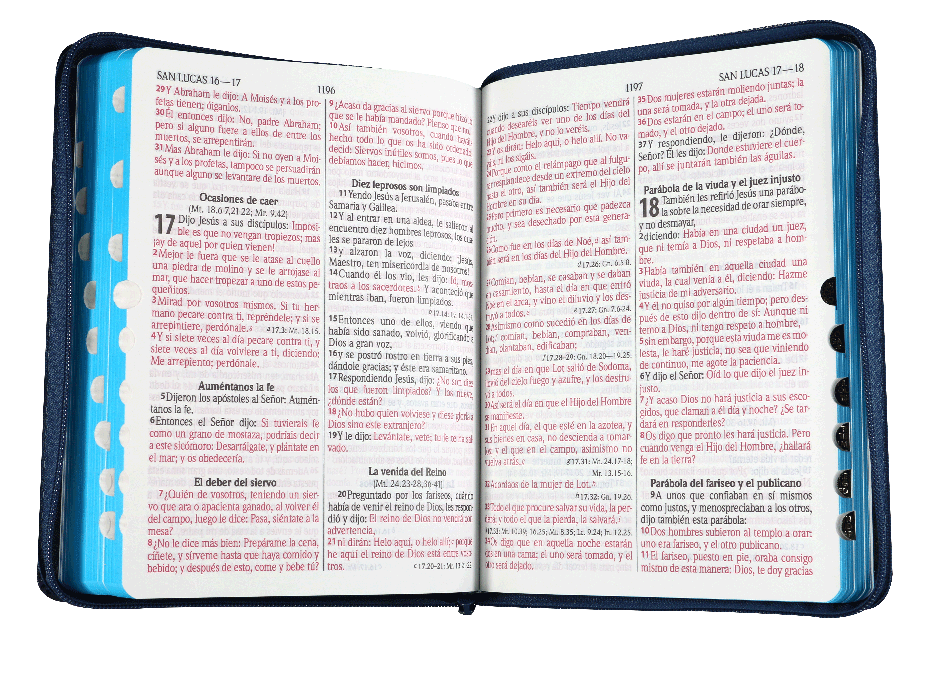 SAN LUCAS 16—17
1196
29Y Abraham le dijo: A Moisés y a los pro-
fetas tienen; óiganlos.
30Él entonces dijo: No, padre Abraham;
pero si alguno fuere a ellos de entre los
muertos, se arrepentirán.
31Mas Abraham le dijo: Si no oyen a Moi-
sés y a los profetas, tampoco se persuadirán
aunque alguno se levantare de los muertos.
Ocasiones de caer
(Mt. 18.6-7,21-22; Mr. 9.42)
17 Dijo Jesús a sus discípulos: Imposi-
ble es que no vengan tropiezos; mas
¡ay de aquel por quien vienen!
2Mejor le fuera que se le atase al cuello
una piedra de molino y se le arrojase al
mar, que hacer tropezar a uno de estos pe-
queñitos.
3Mirad por vosotros mismos. Si tu her-
mano pecare contra ti, repréndele; y si se
arrepintiere, perdónale. a 17.3: Mt. 18.15.
4Y si siete veces al día pecare contra ti, y
siete veces al día volviere a ti, diciendo:
Me arrepiento; perdónale.
Auméntanos la fe
5Dijeron los apóstoles al Señor: Aumén-
tanos la fe.
6Entonces el Señor dijo: Si tuvierais fe
como un grano de mostaza, podríais decir
a este sicómoro: Desarráigate, y plántate en
el mar; y os obedecería.
El deber del siervo
7¿Quién de vosotros, teniendo un sier-
vo que ara o apacienta ganado, al volver él
del campo, luego le dice: Pasa, siéntate a la
mesa?
8¿No le dice más bien: Prepárame la cena,
cíñete, y sírveme hasta que haya comido y
bebido; y después de esto, come y bebe tú?
9¿Acaso da gracias al siervo porque hizo lo
que se le había mandado? Pienso que no.
10Así también vosotros, cuando hayáis
hecho todo lo que os ha sido ordenado,
decid: Siervos inútiles somos, pues lo que
debíamos hacer, hicimos.
Diez leprosos son limpiados
11Yendo Jesús a Jerusalén, pasaba entre
Samaria y Galilea.
12Y al entrar en una aldea, le salieron al
encuentro diez hombres leprosos, los cua-
les se pararon de lejos
13y alzaron la voz, diciendo: ¡Jesús,
Maestro, ten misericordia de nosotros!
14Cuando él los vio, les dijo: Id, mos-
traos a los sacerdotes. Y aconteció que
mientras iban, fueron limpiados.
15Entonces uno de ellos, viendo que
había sido sanado, volvió, glorificando a
Dios a gran voz,
16y se postró rostro en tierra a sus pies,
dándole gracias; y éste era samaritano.
17Respondiendo Jesús, dijo: ¿No son diez
los que fueron limpiados? Y los nueve,
¿dónde están?
18¿No hubo quien volviese y diese gloria a
Dios sino este extranjero?
19Y le dijo: Levántate, vete; tu fe te ha sal-
vado.
La venida del Reino
(Mt. 24.23-28,36-41)
20Preguntado por los fariseos, cuándo
había de venir el reino de Dios, les respon-
dió y dijo: El reino de Dios no vendrá con
advertencia,
21ni dirán: Helo aquí, o helo allí; porque
he aquí el reino de Dios está entre voso-
tros.
1197
SAN LUCAS 17—18
22Y dijo a sus discípulos: Tiempo vendrá
cuando desearéis ver uno de los días del
Hijo del Hombre, y no lo veréis.
23Y os dirán: Helo aquí, o helo allí. No va-
yáis, ni los sigáis.
24Porque como el relámpago que al fulgu-
rar resplandece desde un extremo del cielo
hasta el otro, así también será el Hijo del
Hombre en su día.
25Pero primero es necesario que padezca
mucho, y sea desechado por esta genera-
ción.
26Como fue en los días de Noé, así tam-
bién será en los días del Hijo del Hombre.
17.26: Gn. 6.5-8.
27Comían, bebían, se casaban y se daban
en casamiento, hasta el día en que entró
Noé en el arca, y vino el diluvio y los des-
truyó a todos. 17.27: Gn. 7.6-24.
28Asimismo como sucedió en los días de
Lot; comían, bebían, compraban, ven-
dían, plantaban, edificaban;
17.28-29: Gn. 18.20—19.25.
29mas el día en que Lot salió de Sodoma,
llovió del cielo fuego y azufre, y los destru-
yó a todos.
30Así será el día en que el Hijo del Hombre
se manifieste.
31En aquel día, el que esté en la azotea, y
sus bienes en casa, no descienda a tomar-
los; y el que en el campo, asimismo no
vuelva atrás. 17.31: Mt. 24.17-18;
Mr. 13.15-16.
32Acordaos de la mujer de Lot.
17.32: Gn. 19.26.
33Todo el que procure salvar su vida, la per-
derá; y todo el que la pierda, la salvará.
17.33: Mt. 10.39; 16.25; Mr. 8.35; Lc. 9.24; Jn. 12.25.
34Os digo que en aquella noche estarán
dos en una cama; el uno será tomado, y el
otro será dejado.
35Dos mujeres estarán moliendo juntas; la
una será tomada, y la otra dejada.
36Dos estarán en el campo; el uno será to-
mado, y el otro dejado.
37Y respondiendo, le dijeron: ¿Dónde,
Señor? Él les dijo: Donde estuviere el cuer-
po, allí se juntarán también las águilas.
Parábola de la viuda y el juez injusto
18 También les refirió Jesús una parábo-
la sobre la necesidad de orar siempre,
y no desmayar,
2diciendo: Había en una ciudad un juez,
que ni temía a Dios, ni respetaba a hom-
bre.
3Había también en aquella ciudad una
viuda, la cual venía a él, diciendo: Hazme
justicia de mi adversario.
4Y él no quiso por algún tiempo; pero des-
pués de esto dijo dentro de sí: Aunque ni
temo a Dios, ni tengo respeto a hombre,
5sin embargo, porque esta viuda me es mo-
lesta, le haré justicia, no sea que viniendo
de continuo, me agote la paciencia.
6Y dijo el Señor: Oíd lo que dijo el juez in-
justo.
7¿Y acaso Dios no hará justicia a sus esco-
gidos, que claman a él día y noche? ¿Se tar-
dará en responderles?
8Os digo que pronto les hará justicia. Pero
cuando venga el Hijo del Hombre, ¿hallará
fe en la tierra?
Parábola del fariseo y el publicano
9A unos que confiaban en sí mismos
como justos, y menospreciaban a los otros,
dijo también esta parábola:
10Dos hombres subieron al templo a orar:
uno era fariseo, y el otro publicano.
11El fariseo, puesto en pie, oraba consigo
mismo de esta manera: Dios, te doy gracias